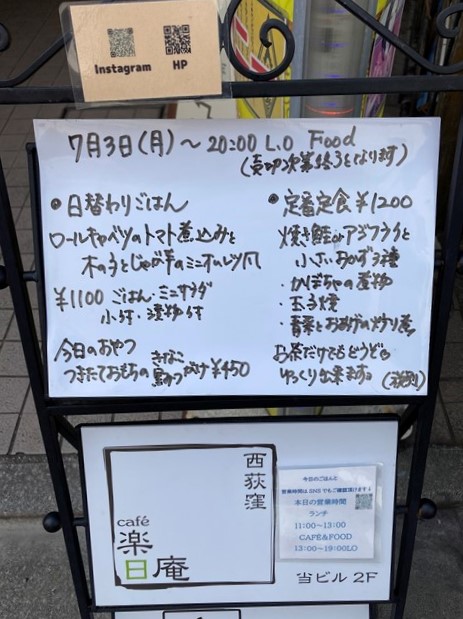 Instagram
HP
7月3日(月)～20:00 L.O Food
(売切次第終了となります)
●日替わりごはん
ロールキャベツのトマト煮込みと
木の子とじゃが芋のミニオムレツ風
¥1100 ごはん・ミニサラダ
小付・漬物付
今日のおやつ
つきたておもちの きなこ 黒みつがけ ¥450
●定番定食 ¥1200
焼き鮭orアジフライと
小さいおかず3種
・かぼちゃの煮物
・玉子焼
・青菜とおあげの炒り煮
お茶だけでもどうぞ。
ゆっくり出来ます。(税別)
西荻窪
café
楽日庵
今日のごはんと
営業時間は SNS でもご確認頂けます!
本日の営業時間
ランチ
11:00～13:00
CAFÉ&FOOD
13:00～19:00LO
当ビル 2F